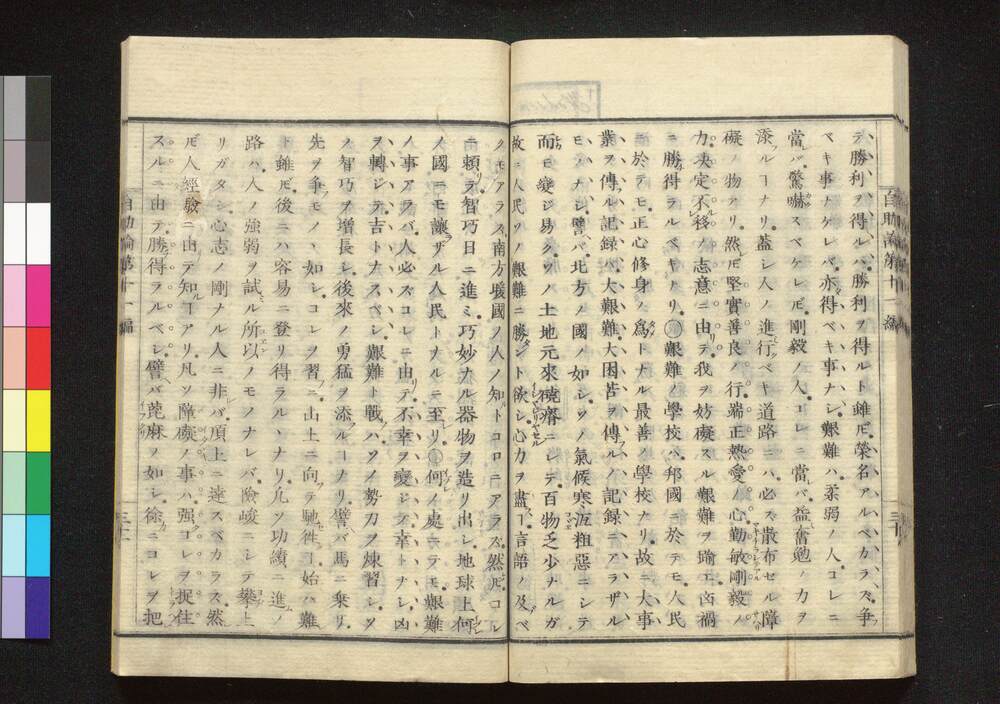 テ勝利ヲ得ルハ勝利ヲ得ルト雖𪜈榮名アルベカラズ爭フ
ベキ事ナケレバ亦得ベキ事ナシ艱難ハ柔弱ノ人コレニ
當バ驚嚇スベケレ𪜈剛毅ノ人コレニ當バ益奮勉ノ力ヲ
添ルヿナリ蓋シ人ノ進行ベキ道路ニハ必ズ散布セル障
礙ノ物アリ然𪜈堅實善良ノ行端正熱愛ノ心勤敏剛毅ノ
力決定不移ノ志意ニ由テ我ヲ妨礙スル艱難ヲ踰エ凶禍
ニ勝得ラルベキナリ〇艱難ノ學校ハ邦國ニ於テモ人民
ニ於テモ正心修身ノ爲トナル最善ノ學校ナリ故ニ大事
業ヲ傳ル記録ハ大艱難大困苦ヲ傳ルノ記録ニアラザル
モノナシ譬バ北方ノ國ノ如シソノ氣候寒沍粗惡ニシテ
而モ變ジ易クソノ土地元來磽瘠ニシテ百物乏少ナルガ
故ニ人民ソノ艱難ニ勝ント欲シ心力ヲ盡ヿ言語ノ及ベ
自助論第十一編
ノモアラズ南方煖國ノ人ノ知トコロニアラズ然𪜈コレ
ニ頼テ智巧日ニ進ミ巧妙ナル器物ヲ造リ出シ地球上何
ノ國ニモ讓ザル人民トナルニ至レリ〇何ノ處ニテモ艱難
ノ事アラバ人必ズコレニ由テ不幸ヲ變ジテ幸トナシ凶
ヲ轉ジテ吉トナスベシ艱難ト戰ハソノ勢力ヲ煉習シソ
ノ智巧ヲ增長シ後來ノ勇猛ヲ添ルヿナリ譬バ馬ニ乗リ
先ヲ爭モノヽ如シコレヲ習ニ山上ニ向テ馳徃ヿ始ハ難
ト雖𪜈後ニハ容易ニ登リ得ラルヽナリ凡ソ功績ニ進ノ
路ハ人ノ強弱ヲ試ル所以ノモノナレバ險峻ニシテ攀上
リガタシ心志ノ剛ナル人ニ非バ頂上ニ達スベカラズ然
𪜈人經驗ニ由テ知ヿアリ凡ソ障礙ノ事ハ强クコレヲ捉住
スルニ由テ勝得ラルベシ譬バ蓖麻ノ如シ徐ニコレヲ把
自助論第十一編